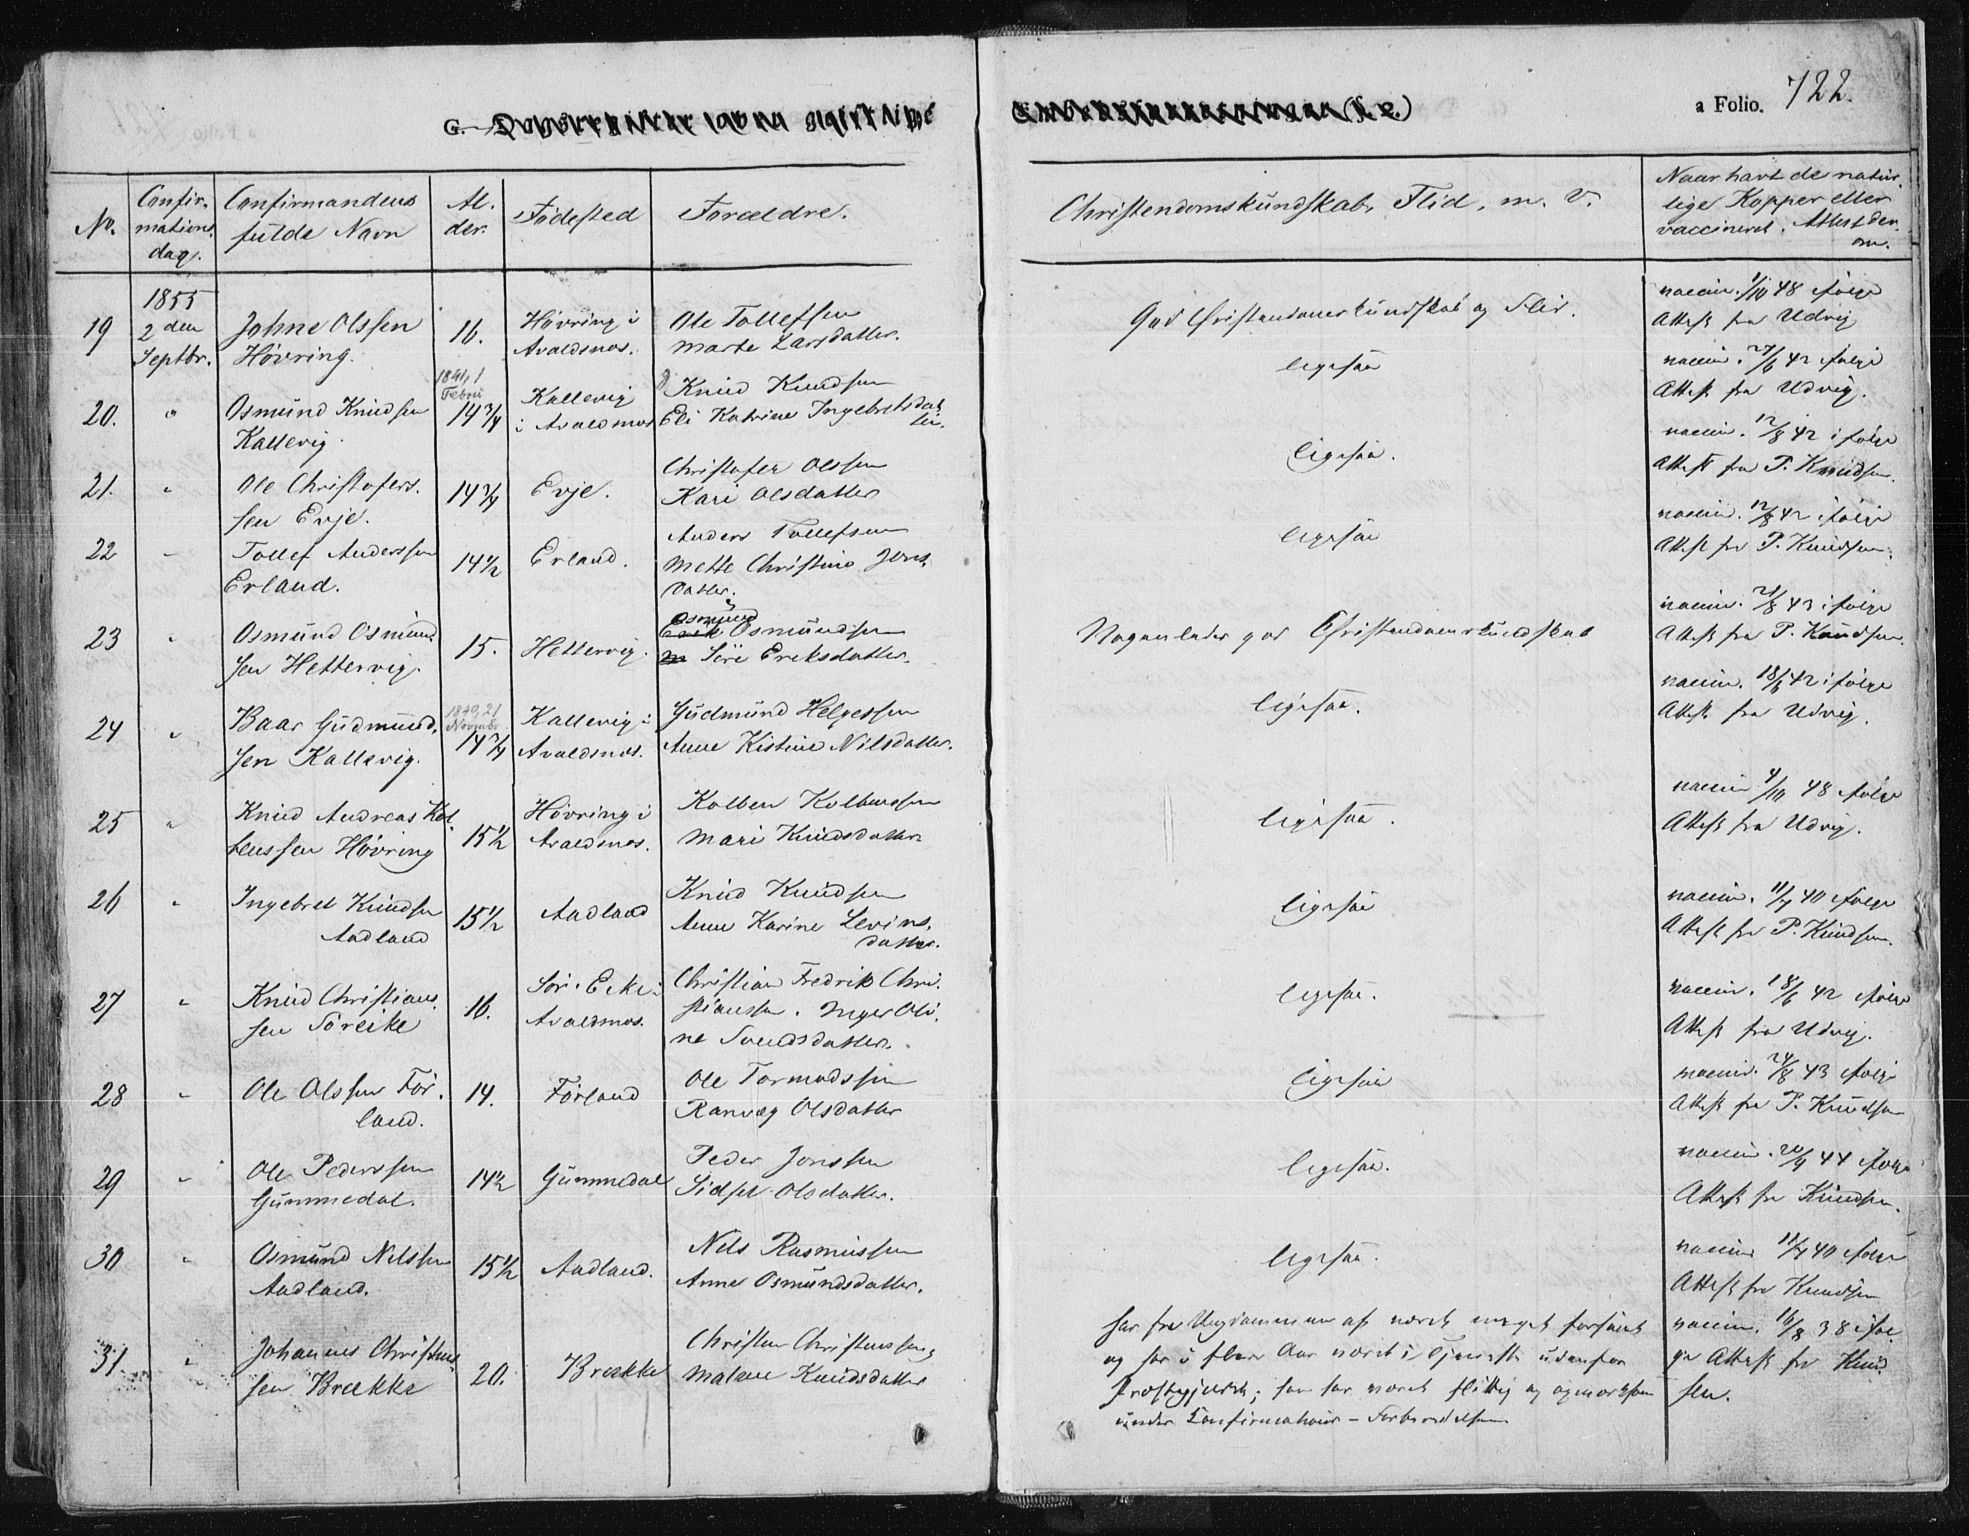 G.
a Folio. 722.
No.
Confir-
mations
dag.
Confirmandens
fulde Navn
Al-
der.
Fødested
Forældre.
Christendomskundskab, Flid, m. V.
Naar havt de natur-
lige Kopper eller
vaccineret. Attest der-
om.
1855
19
2den
Septbr.
Johne Olssen
Hövring.
16.
Hövring i
Avaldsnes.
Ole Tollefsen
Marte Larsdatter.
God Christendomskundskab og Flid.
vaccin. 1/10 48 ifølge
Attest fra Udvig
20.
"
Osmund Knudsen
Kallevig.
1841, 1
Febru
14 3/4
Kallevig
i Avaldsnes
Knud Knudsen
Eli Katrine Ingebretsdat-
ter.
ligesaa
vaccin. 27/6 42 ifølge
Attest fra Udvig.
21.
"
Ole Christofers-
sen Evje.
14 3/4
Evje.
Christofer Olssen
Kari Olsdatter
ligesaa.
vaccin. 12/8 42 i følge
Attest fra P. Knudsen.
22
"
Tollef Anderssen
Erland.
14 1/2
Erland.
Anders Tollefsen
Mette Christine Jons-
datter.
ligesaa
vaccin. 12/8 42 ifølge
Attest fra P. Knudsen.
23
"
Osmund Osmund-
sen Hettervig.
15.
Hettervig.
Osmund
Osmundsen
Siri Eriksdatter.
Nogenledes god Christendomskundskab
vaccin. 21/8 43 i følge
Attest fra P. Knudsen.
24
"
Baar Gudmund-
sen Kallevig.
1840, 21
Novmbr
14 3/4
Kallevig i
Avaldsnes.
Gudmund Helgessen
Anne Kistine Nilsdatter.
ligesaa.
vaccin. 18/6 42 i følge
Attest fra Udvig.
25
"
Knud Andreas Kol-
benssen Hövring
15 1/2
Hövring i
Avaldsnes.
Kolben Kolbenssen
Mari Knudsdatter
ligesaa.
vaccin 4/10 48 ifølge
Attest fra Udvig.
26
"
Ingebret Knudsen
Aadland
15 1/2
Aadland
Knud Knudsen
Anne Karine Levins-
datter.
ligesaa
vaccin. 11/7 40 ifølge
Attest fra P. Knudsen.
27
"
Knud Christians-
sen Söreike
16.
Sör-Eike i
Avaldsnes.
Christian Fredrik Chri-
stianssen. Inger Oli-
ne Svendsdatter.
ligesaa.
vaccin. 18/6 42 ifølge
Attest fra Udvig.
28
"
Ole Olssen För-
land.
14.
Förland
Ole Tormodssen
Ranvæg Olsdatter
ligesaa
vaccin. 24/8 43 ifølge
Attest fra P. Knudsen
29
"
Ole Pederssen
Gummedal.
14 1/2
Gummedal
Peder Jonssen
Sidsel Olsdatter.
ligesaa.
vaccin. 20/9 44 ifølge
Attest fra Knudsen.
30
"
Osmund Nilssen
Aadland.
15 1/2
Aadland.
Nils Rasmussen
Anne Osmundsdatter.
ligesaa.
vaccin 11/7 40 ifølge
Attest fra Knudsen
31
"
Johannes Christens-
sen Brække
20.
Brække
Christen Christenssen
Malene Knudsdatter
har fra Ungdommen af været meget forsømt
og har i flere Aar været i Tjeneste udenfor
Præstegjeldet; han har været flittig og opmærksom
under Confirmations-Forberedelsen
vaccin. 16/8 38 iføl-
ge Attest fra Knud-
sen.